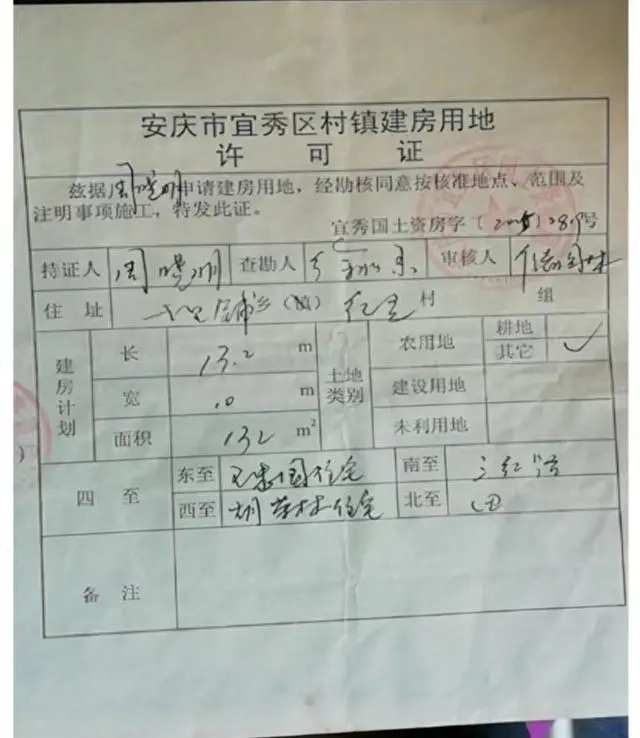 安庆市宜秀区村镇建房用地
许可证
兹据周曙明申请建房用地，经勘核同意按核准地点、范围及
注明事项施工，特发此证。
宜秀国土资房字（2005）289号
持证人 周曙明 查勘人 审核人
住址 十里铺乡（镇）红星村 组
建房计划 长 13.2 m 土地类别 农用地 耕地
其它 ✓
宽 10 m 建设用地
面积 132 m² 未利用地
四至 东至 住宅 南至
西至 胡 林住宅 北至 田
备注